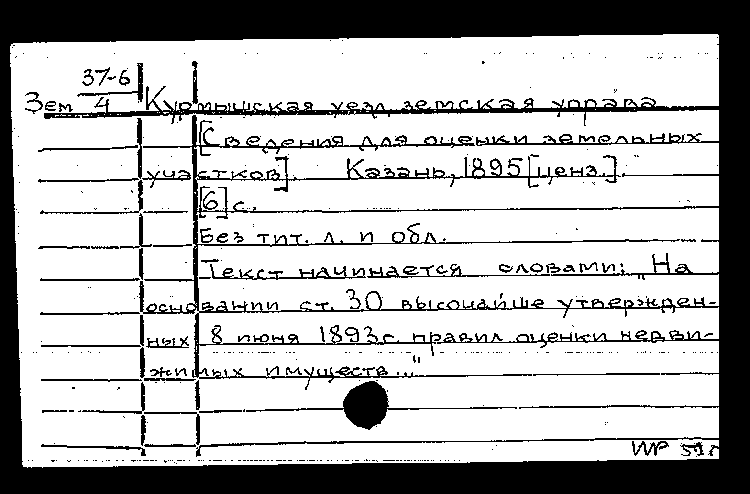 37-6
Зем 4 Курмышская уезд. земская управа
[Сведения для оценки земельных
участков]. Казань, 1895 [ценз.].
[6] с.
Без тит. л. и обл.
Текст начинается словами: "На
основании ст. 30 высочайше утвержден-
ных 8 июня 1893г. правил оценки недви-
жимых имуществ..."